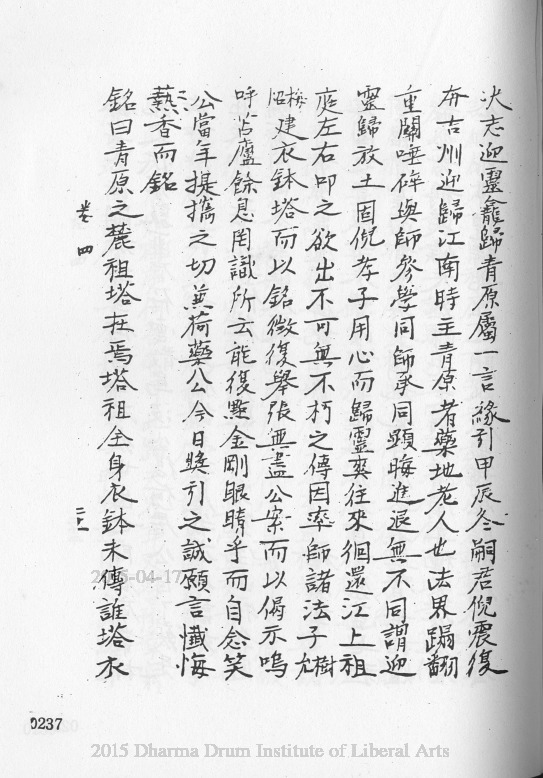 決志迎靈龕歸青原屬一言緣引甲辰冬嗣君倪震復
奔吉州迎歸江南時主青原者藥地老人也法界蹋翻
重關唾碎與師參學同師承同顯晦進退無不同謂迎
靈歸故土固倪孝子用心而歸靈爽往來徊還江上祖
庭左右叩之欲出不可無不朽之傳因率師諸法子尤樹
建衣鉢塔而以銘徵復舉張無盡公案而以偈示嗚
呼苫廬餘息罔識所云能復點金剛眼睛乎而自念笑
公當年提攜之切兼荷藥公今日獎引之誠願言懺悔
爇香而銘
銘曰青原之麓祖塔在焉塔祖全身衣鉢未傳誰塔衣
卷四
二十一
2015-04-17
0237
2015 Dharma Drum Institute of Liberal Arts